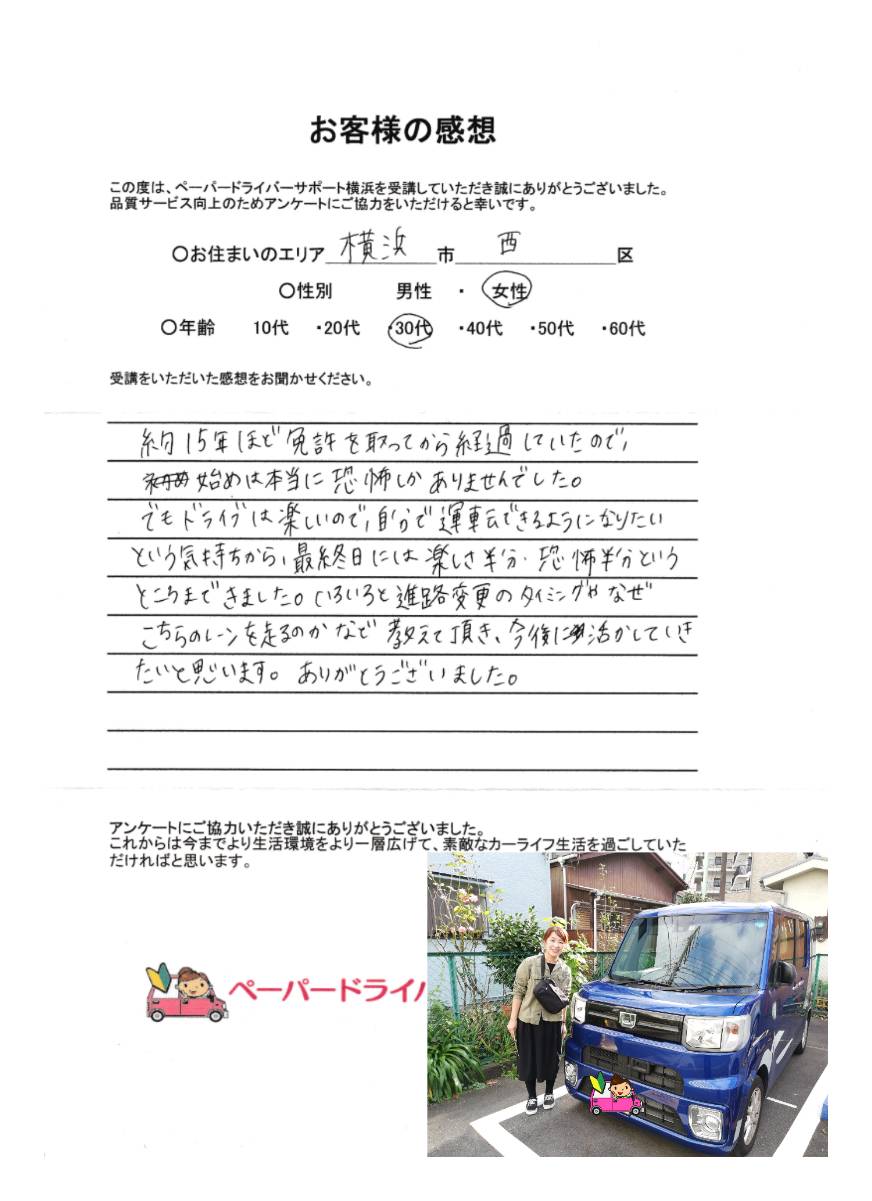 お客様の感想
この度は、ペーパードライバーサポート横浜を受講していただき誠にありがとうございました。
品質サービス向上のためアンケートにご協力をいただけると幸いです。
〇お住まいのエリア 横浜 市 西 区
〇性別 男性 ・ 女性
〇年齢 10代 ・20代 ・30代 ・40代 ・50代 ・60代
受講をいただいた感想をお聞かせください。
約15年ほど免許を取ってから経過していたので、
始めは本当に恐怖しかありませんでした。
でもドライブは楽しいので、自分で運転できるようになりたい
という気持ちから、最終日には楽しさ半分・恐怖半分という
ところまできました。いろいろと進路変更のタイミングやなぜ
こちらのレーンを走るのかなど教えて頂き、今後に活かしていき
たいと思います。ありがとうございました。
アンケートにご協力いただき誠にありがとうございました。
これからは今までより生活環境をより一層広げて、素敵なカーライフ生活を過ごしていた
だければと思います。
ペーパードライバ